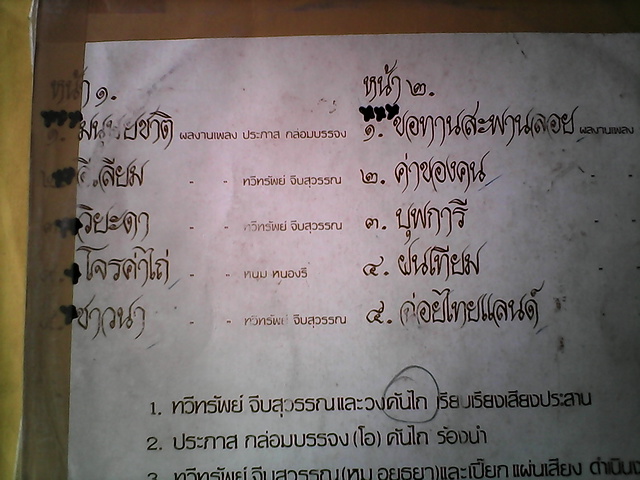 หน้า ๑.
มนุษยชาติ ผลงานเพลง ประภาส กล่อมบรรจง
อีเลียม " " ทวีทรัพย์ จีบสุวรรณ
วิยะดา " " ทวีทรัพย์ จีบสุวรรณ
โจรค่าไถ่ " " หนุ่ม หนองรี
ชาวนา " " ทวีทรัพย์ จีบสุวรรณ
หน้า ๒.
๑. ขอทานสะพานลอย ผลงานเพลง
๒. ค่าของคน
๓. บุพการี
๔. ฝนเทียม
๕. ด่อยไทยแลนด์
1. ทวีทรัพย์ จีบสุวรรณและวงคันไถ เรียบเรียงเสียงประสาน
2. ประภาส กล่อมบรรจง (โอ) คันไถ ร้องนำ
3. ทวีทรัพย์ จีบสุวรรณ (หมู อยุธยา) และเปี๊ยก แผ่นเสียง